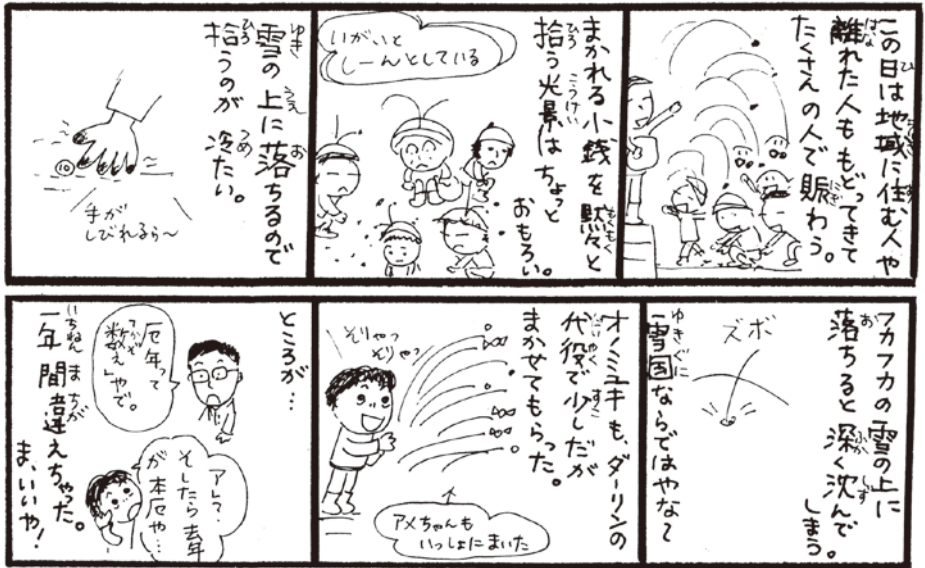 この日は地域に住む人や
離れた人ももどってきて
たくさんの人で賑わう。
まかれる小銭を黙々と
拾う光景はちょっと
おもろい。
いがいと
しーんとしている
雪の上に落ちるので
拾うのが冷たい。
手が
しびれるぅ〜
フカフカの雪の上に
落ちると深く沈んで
しまう。
ズボ
雪国ならではやな〜
オノミユキも、ダーリンの
代役で少しだが
まかせてもらった。
そりゃっ
そりゃっ
アメちゃんも
いっしょにまいた
ところが…
厄年って
「数え」やで。
アレ?
そしたら去年
が本厄や…
一年間違えちゃった。
ま、いいや!